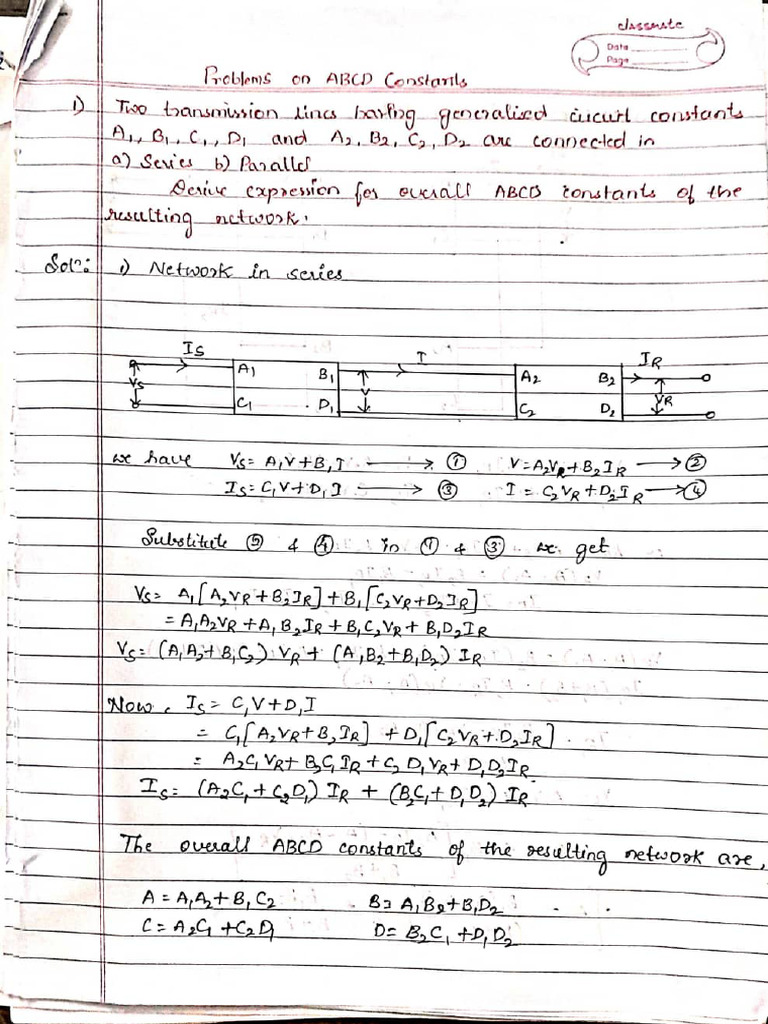 classmate
Date
Page
Problems on ABCD Constants
1) Two transmission lines having generalised circuit constants
A₁, B₁, C₁, D₁ and A₂, B₂, C₂, D₂ are connected in
a) Series b) Parallel
Derive expression for overall ABCD constants of the
resulting network.
Solⁿ: i) Network in series
IS I IR
A₁ B₁ A₂ B₂
VS V VR
C₁ D₁ C₂ D₂
we have VS = A₁V + B₁I → ① V = A₂VR + B₂IR → ②
IS = C₁V + D₁I → ③ I = C₂VR + D₂IR → ④
Substitute ② & ④ in ① & ③ we get
VS = A₁[A₂VR + B₂IR] + B₁[C₂VR + D₂IR]
= A₁A₂VR + A₁B₂IR + B₁C₂VR + B₁D₂IR
VS = (A₁A₂ + B₁C₂) VR + (A₁B₂ + B₁D₂) IR
Now, IS = C₁V + D₁I
= C₁[A₂VR + B₂IR] + D₁[C₂VR + D₂IR]
= A₂C₁VR + B₂C₁IR + C₂D₁VR + D₁D₂IR
IS = (A₂C₁ + C₂D₁) IR + (B₂C₁ + D₁D₂) IR
The overall ABCD constants of the resulting network are,
A = A₁A₂ + B₁C₂ B = A₁B₂ + B₁D₂
C = A₂C₁ + C₂D₁ D = B₂C₁ + D₁D₂